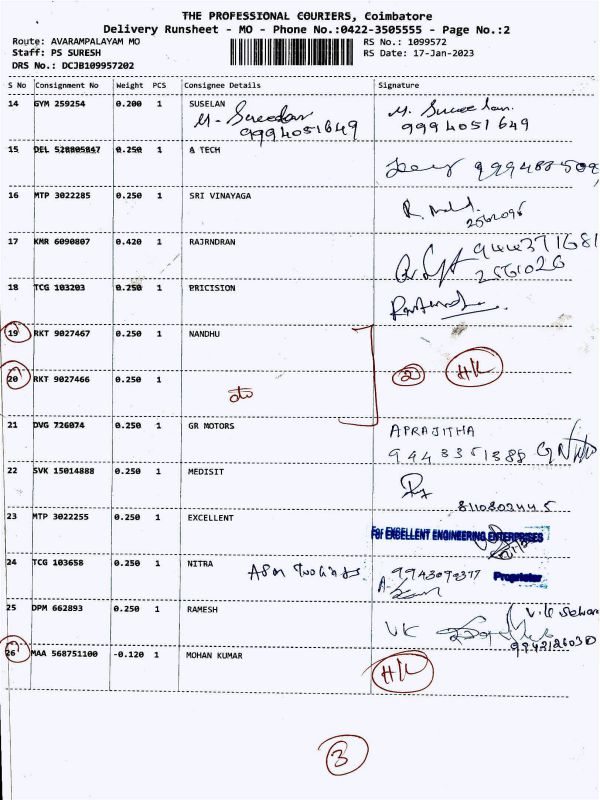 THE PROFESSIONAL COURIERS, Coimbatore
Delivery Runsheet - MO - Phone No.:0422-3505555 - Page No.:2
Route: AVARAMPALAYAM MO RS No.: 1099572
Staff: PS SURESH RS Date: 17-Jan-2023
DRS No.: DCJB109957202
S No Consignment No Weight PCS Consignee Details Signature
14 GYM 259254 0.200 1 SUSELAN
M. Suseelan M. Suseelan
9994051649 9994051649
15 DEL 528805847 0.250 1 A TECH
16 MTP 3022285 0.250 1 SRI VINAYAGA
17 KMR 6090807 0.420 1 RAJRNDRAN
2561026
18 TCG 103203 0.250 1 PRICISION
19 RKT 9027467 0.250 1 NANDHU
20 RKT 9027466 0.250 1
2 HK
21 DVG 726074 0.250 1 GR MOTORS APRAJITHA
9443351388
22 SVK 15014888 0.250 1 MEDISIT
8110802445
23 MTP 3022255 0.250 1 EXCELLENT
For EXCELLENT ENGINEERING ENTERPRISES
24 TCG 103658 0.250 1 NITRA
Proprietor
25 DPM 662893 0.250 1 RAMESH
VK
26 MAA 568751100 -0.120 1 MOHAN KUMAR
HK
3